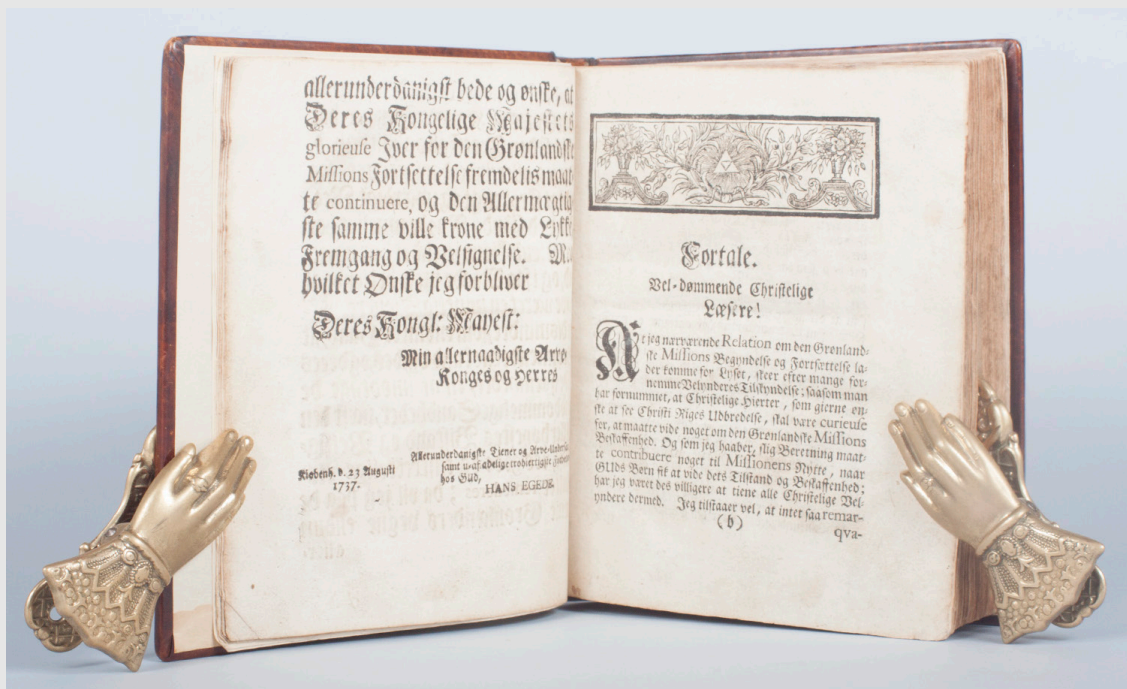 allerunderdanigst bede og ønske, at
Deres Kongelige Majestets
glorieuse Iver for den Grønlandske
Missions Fortsettelse fremdelis maat
te continuere, og den Allermægtig
ste samme ville krone med Lykke
Fremgang og Velsignelse.
hvilket Ønske jeg forbliver
Deres Kongl: Mayest:
Min allernaadigste Arve
Konges og Herres
Allerunderdanigste Tiener og Arve-Undersaa
samt uaf
hos Gud,
Kiøbenh. d. 23 Augusti
1737.
HANS EGEDE.
Fortale.
Vel-dømmende Christelige
Læsere!
At jeg nærværende Relation om den Grønland-
ste Missions Begyndelse og Fortsættelse la-
der komme for Lyset, skeer efter mange for-
nemme Velynderes Tilskyndelse; saasom man
har fornummet, at Christelige Hierter, som gierne øn-
ske at see Christi Riges Udbredelse, skal være curieuse
for, at maatte vide noget om den Grønlandske Missions
Beskaffenhed. Og som jeg haaber, slig Beretning maat-
te contribuere noget til Missionens Nytte, naar
GUds Børn fik at vide dets Tilstand og Beskaffenhed;
har jeg været des villigere at tiene alle Christelige Vel-
yndere dermed. Jeg tilstaaer vel, at intet saa remar-
(b)
qva-